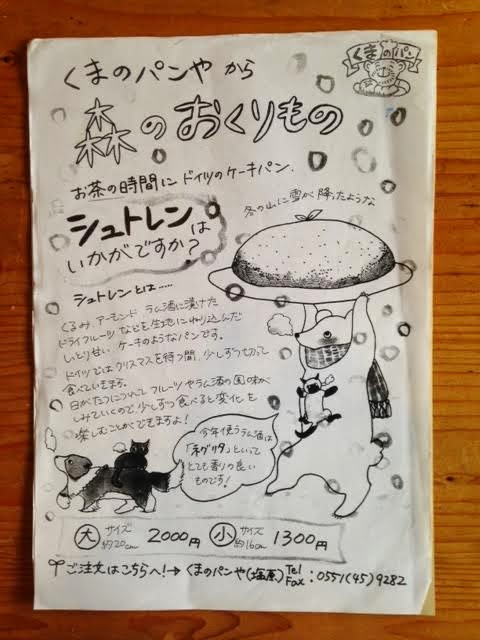 くまのパン
くまのパンやから
森のおくりもの
お茶の時間にドイツのケーキパン、
冬の山に雪が降ったような
シュトレンは
いかがですか？
シュトレンとは……
くるみ、アーモンド ラム酒に漬けた
ドライフルーツなどを生地にねり込んだ
しっとり甘い ケーキのようなパンです。
ドイツではクリスマスを待つ間、少しずつ切って
食べていきます。
日がたつにつれて フルーツやラム酒の風味が
しみていくので、少しずつ食べると変化を
楽しむことができますよ！
今年使うラム酒は
「ネグリタ」といって
とても香りの良い
ものです！
大 サイズ 約20cm 2000円 小 サイズ 約16cm 1300円
ご注文はこちらへ！→ くまのパンや(塩原) Tel Fax：0551(45)9282